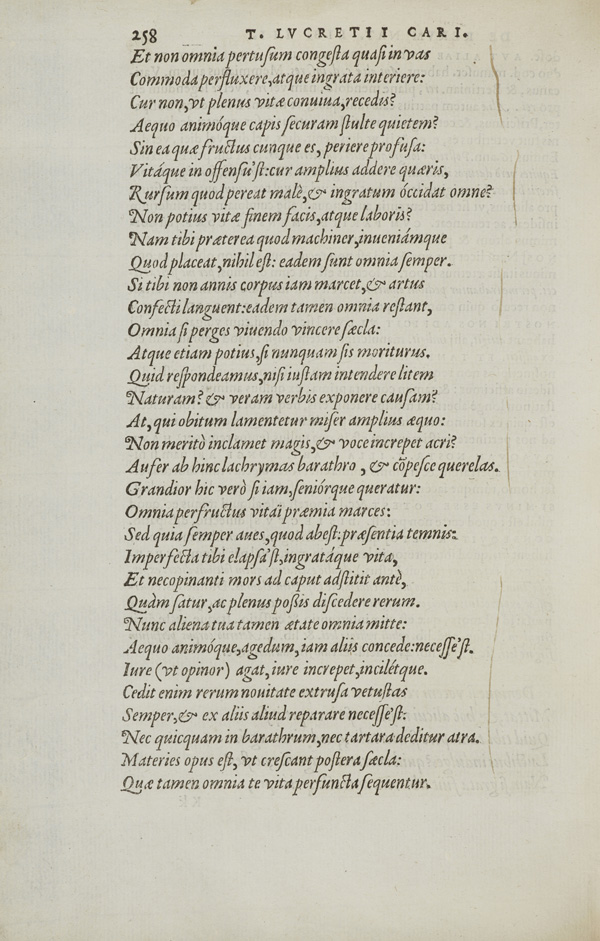 258 T. LVCRETII CARI.
Et non omnia pertusum congesta quasi in vas
Commoda perfluxere, atque ingrata interiere:
Cur non, vt plenus vitæ conuiua, recedis?
Aequo animóque capis securam stulte quietem?
Sin ea quæ fructus cunque es, periere profusa:
Vitáque in offensu'st: cur amplius addere quæris,
Rursum quod pereat malè, & ingratum óccidat omne?
Non potius vitæ finem facis, atque laboris?
Nam tibi præterea quod machiner, inueniámque
Quod placeat, nihil est: eadem sunt omnia semper.
Si tibi non annis corpus iam marcet, & artus
Confecti languent: eadem tamen omnia restant,
Omnia si perges viuendo vincere sæcla:
Atque etiam potius, si nunquam sis moriturus.
Quid respondeamus, nisi iustam intendere litem
Naturam? & veram verbis exponere causam?
At, qui obitum lamentetur miser amplius æquo:
Non meritò inclamet magis, & voce increpet acri?
Aufer ab hinc lachrymas barathro, & cõpesce querelas.
Grandior hic verò si iam, seniórque queratur:
Omnia perfructus vitaï præmia marces:
Sed quia semper aues, quod abest: præsentia temnis:
Imperfecta tibi elapsa'st, ingratáque vita,
Et necopinanti mors ad caput adstitit antè,
Quàm satur, ac plenus possis discedere rerum.
Nunc aliena tua tamen ætate omnia mitte:
Aequo animóque, agedum, iam aliis concede: necesse'st.
Iure (vt opinor) agat, iure increpet, incilétque.
Cedit enim rerum nouitate extrusa vetustas
Semper, & ex aliis aliud reparare necesse'st.
Nec quicquam in barathrum, nec tartara deditur atra.
Materies opus est, vt crescant postera sæcla:
Quæ tamen omnia te vita perfuncta sequentur.